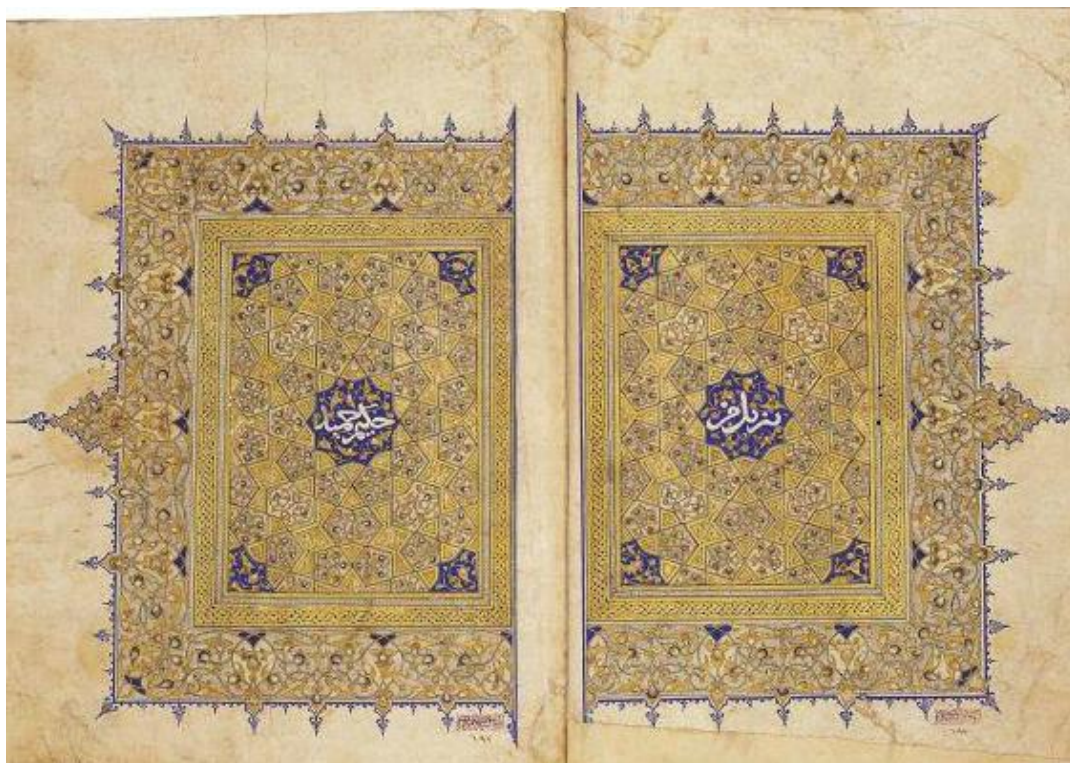 تنزيل من
حكيم حميد